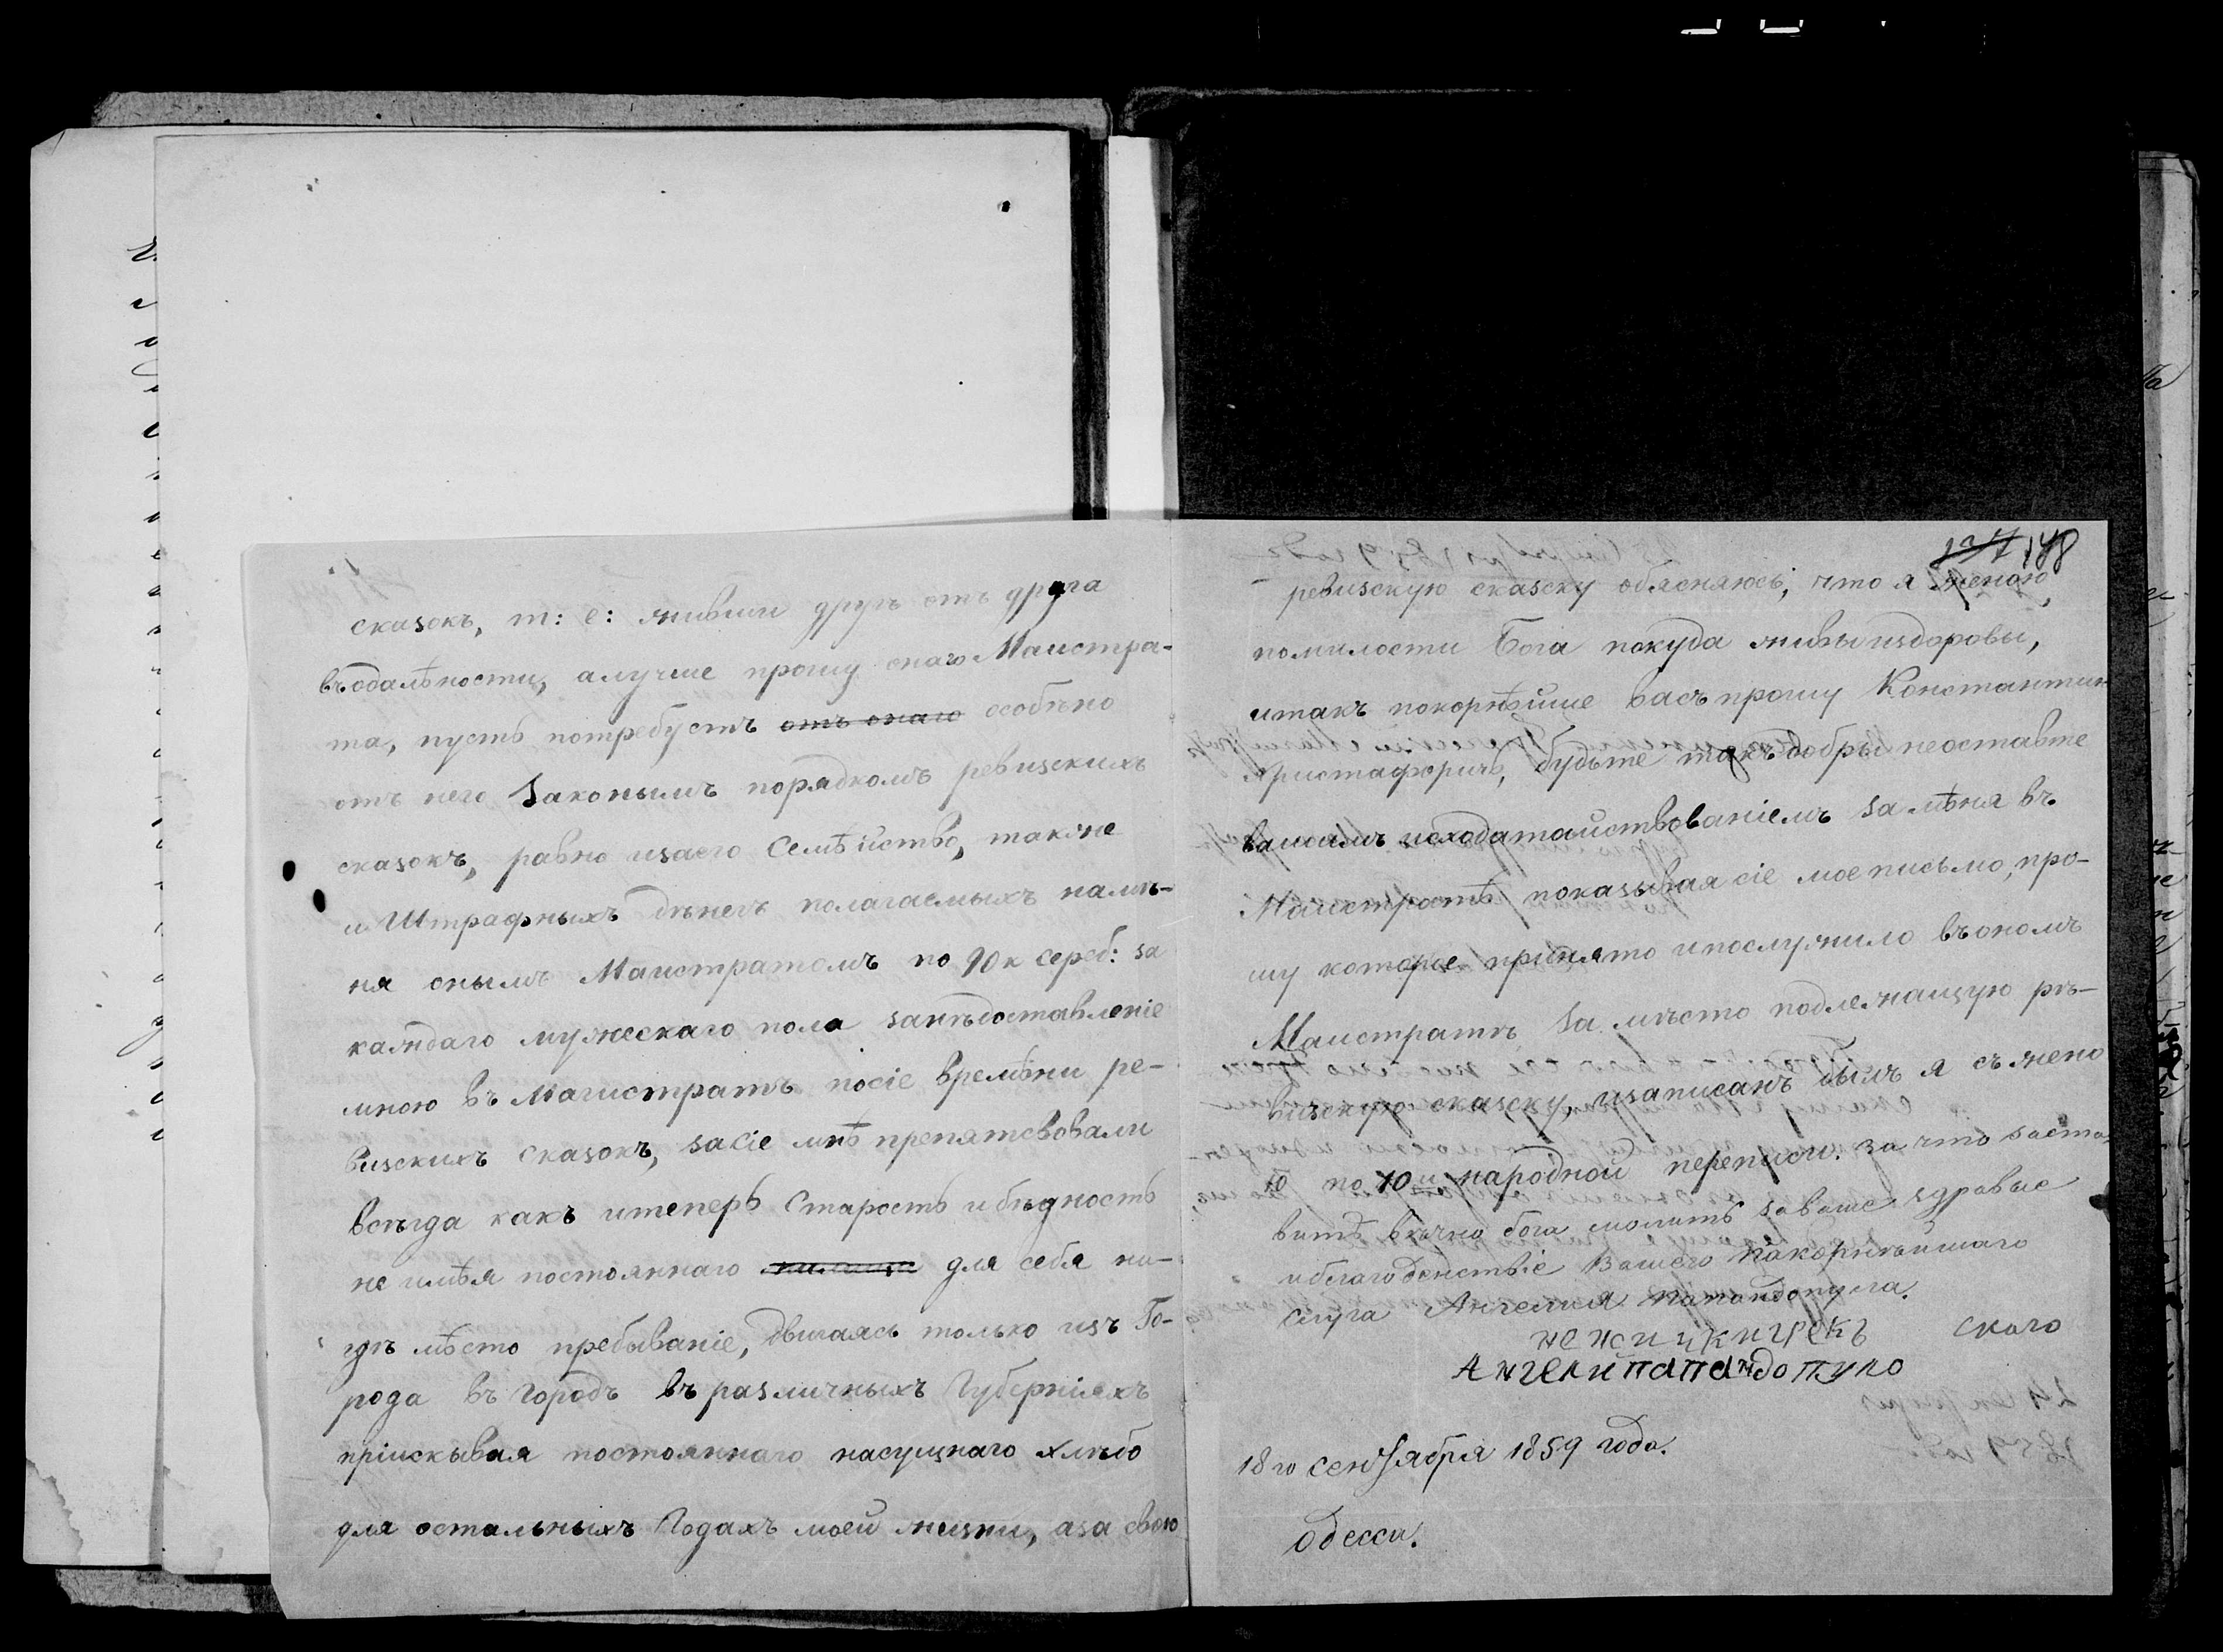 сказокъ, т: е: живши другъ отъ друга
въодалѣности, алучше прошу онаго Маистра-
та, пусть потребуетъ отъ онаго особѣно
отъ него Законымъ порядкомъ ревизскихъ
сказокъ, равно изаего Семѣйство, также
и Штрафныхъ дѣнегъ полагаемыхъ намѣ-
ня онымъ Маистратомъ по 90 к сереб: за
каждаго мужескаго пола занѣдоставленіе
мною въ Магистратъ посіе врѣмѣни ре-
визскихъ сказокъ, засіе мнѣ препятсвовали
всѣгда какъ итеперь Старость и бѣдность
не имѣя постояннаго для себя ни-
гдѣ мѣсто пребываніе, двигаясь только изъ Го-
рода въ городъ въ различныхъ Губерніяхъ
пріискывая постояннаго насущнаго хлѣбо
для остальныхъ Годахъ моей жизни, аза свою
137 148
ревизскую сказску обясняюсь, что я женою,
помилости Бога покуда живы издоровы,
итакъ покорнѣйше васъ прошу Константин
Христафоричъ, будьте такъ добры неоставте
вашимъ исходатайствованіемъ за мѣня въ
Маистратѣ показывая сіе мое письмо, про-
шу которе принято ипослужило въономъ
Маистратѣ За мѣсто подлежащую рѣ-
визскую сказску, изаписанъ былъ я съ жено
ю по 10й народной переписи. за что заста-
витѣ вѣчно бога молить заваше здравые
иблагоденствіе Вашего покорнѣйшаго
слуга Ангелия Папандопула.
нежинкигрекъ ского
Ангели папандопуло
18 го сентября 1859 года.
Одесса.